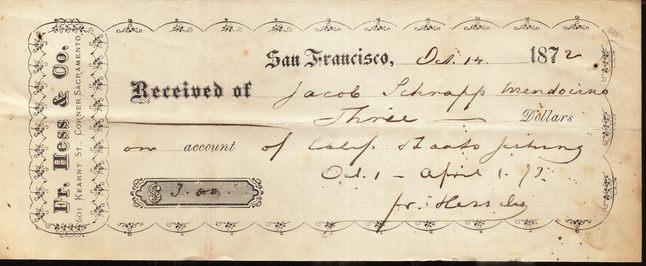 Fr. Hess & Co.
601 Kearny St. Corner Sacramento
San Francisco, Oct. 14. 1872
Received of Jacob Schrapp Mendocino
Three — Dollars
on account of Calif. Staats Zeitung
Oct. 1 – April 1. 73
$ 3.00
Fr. Hess & Co